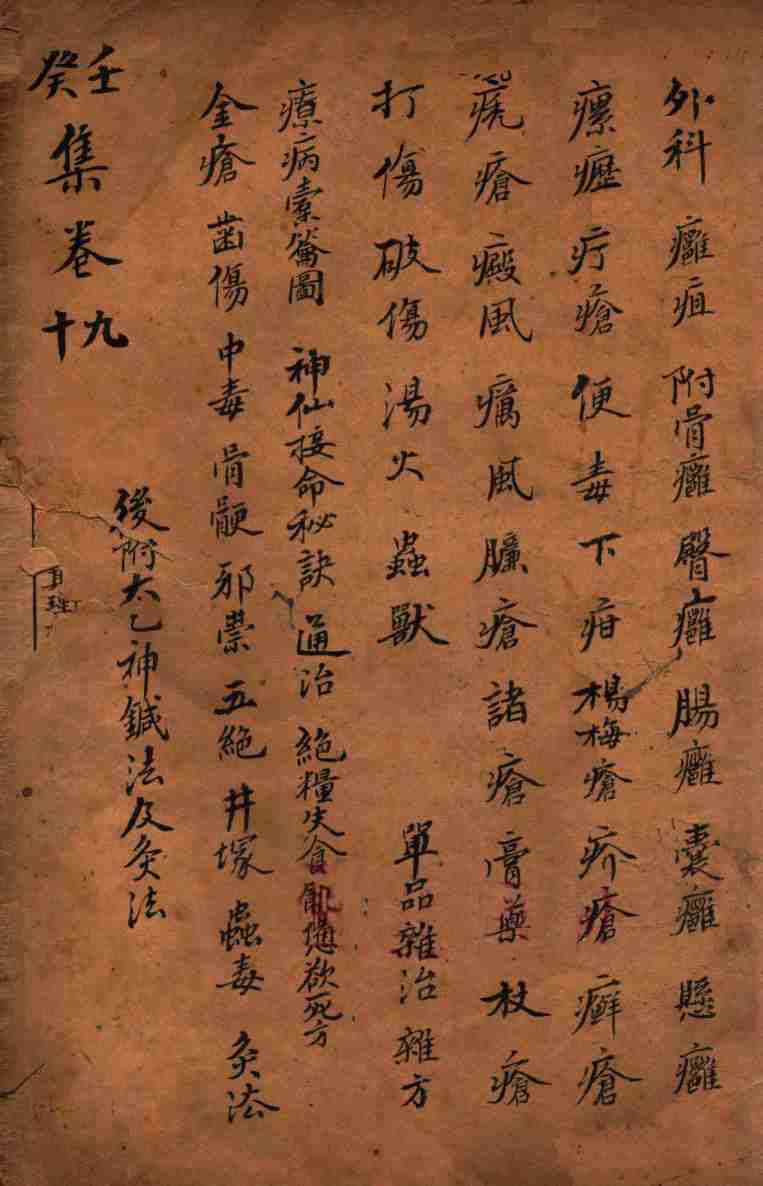 外科 癰疽 附骨癰 臀癰 腸癰 囊癰 懸癰
瘰癧 疔瘡 便毒 下疳 楊梅瘡 疥瘡 癬瘡
禿瘡 癜風 癘風 臁瘡 諸瘡 膏藥 杖瘡
打傷 破傷 湯火 蟲獸 單品雜治 雜方
療病 圖 神仙接命秘訣 通治 絕糧失食飢憊欲死方
金瘡 齒傷 中毒 骨骾 邪祟 五絕 井塚 蠱毒 灸法
後附太乙神鍼法及灸法
壬癸集卷十九